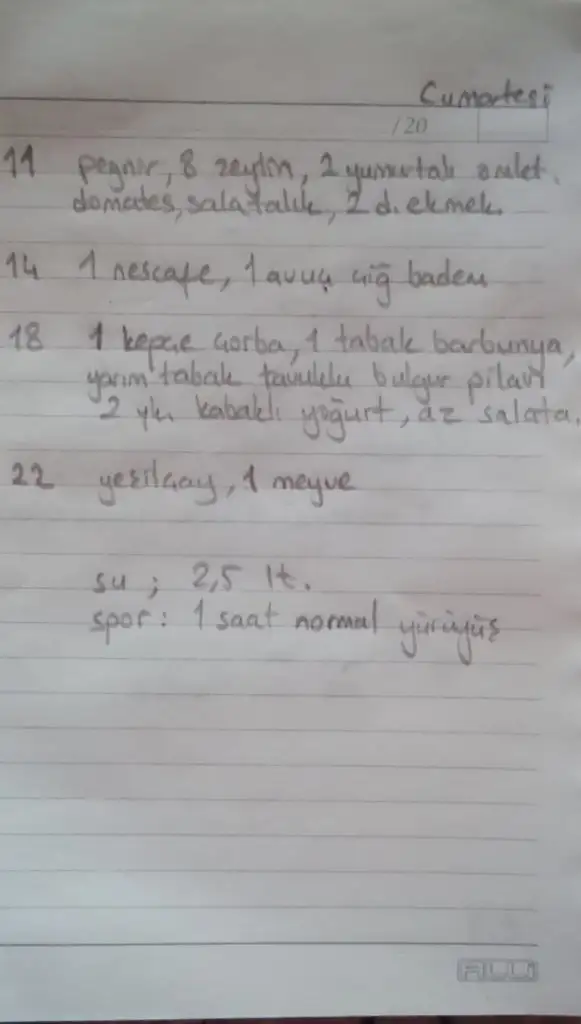 Cumartesi
/20
11 peynir, 8 zeytin, 2 yumurtalı omlet.
domates, salatalık, 2 d. ekmek.
14 1 nescafe, 1 avuç çiğ badem
18 1 kepçe çorba, 1 tabak barbunya,
yarım tabak tavuklu bulgur pilavı
2 yk. kabaklı yoğurt, az salata.
22 yeşilçay, 1 meyve
su ; 2,5 lt.
spor : 1 saat normal yürüyüş